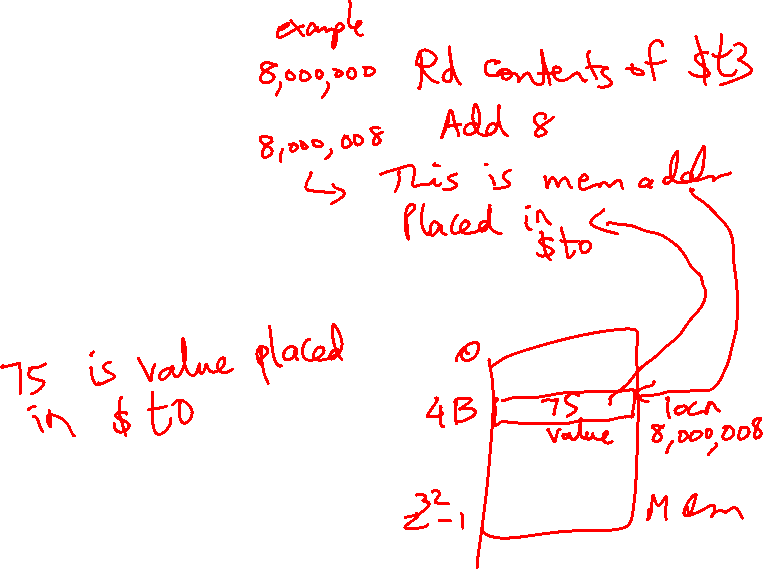 example
8,000,000 Rd contents of $t3
8,000,008 Add 8
This is mem addr
Placed in
$t0
75 is value placed
in $t0
0
4B 75 locn
value 8,000,008
2^32-1 Mem